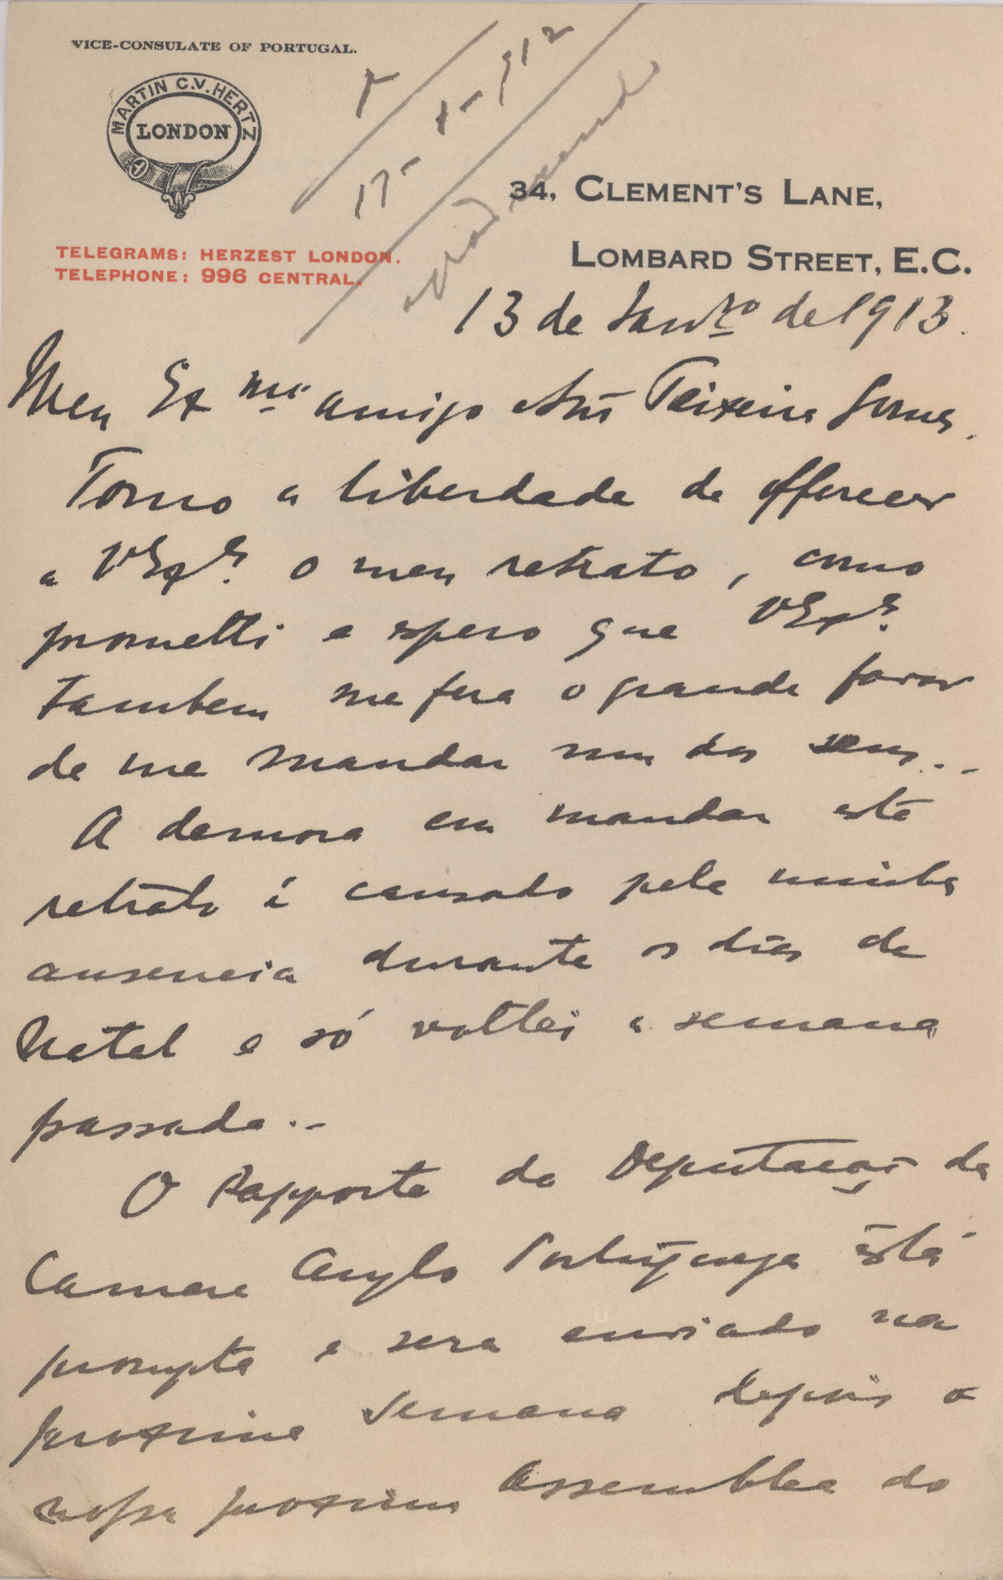 VICE-CONSULATE OF PORTUGAL.
MARTIN C.V. HERTZ
LONDON
R
17-1-912
34, CLEMENT'S LANE,
LOMBARD STREET, E.C.
TELEGRAMS: HERZEST LONDON.
TELEPHONE: 996 CENTRAL.
13 de Janro de 1913.
Meu Exmo amigo Snr Teixeira Gomes.
Tomo a liberdade de offerecer
a VExa. o meu retrato, como
prometti e espero que VExa.
tambem me fara o grande favor
de me mandar um dos seus..
A demora em mandar este
retrato é causado pela minha
ausencia durante os dias de
Natal e só voltei a semana
passada..
O Rapporte da Deputação da
Camara Anglo Portugueza está
prompto e sera enviado na
proxima semana depois a
nossa proxima Assemblea do